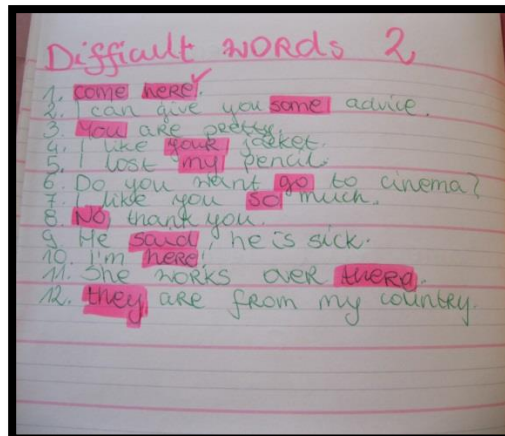 Difficult words 2
1. come here!
2. I can give you some advice.
3. You are pretty.
4. I like your jacket.
5. I lost my pencil.
6. Do you want go to cinema?
7. I like you so much.
8. No, thank you.
9. He said, he is sick.
10. I'm here!
11. She works over there.
12. they are from my country.